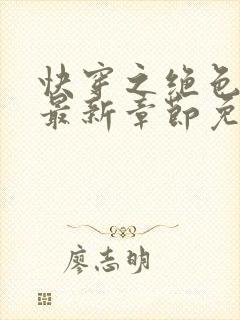 快穿之绝色
最新章节免
廖志明